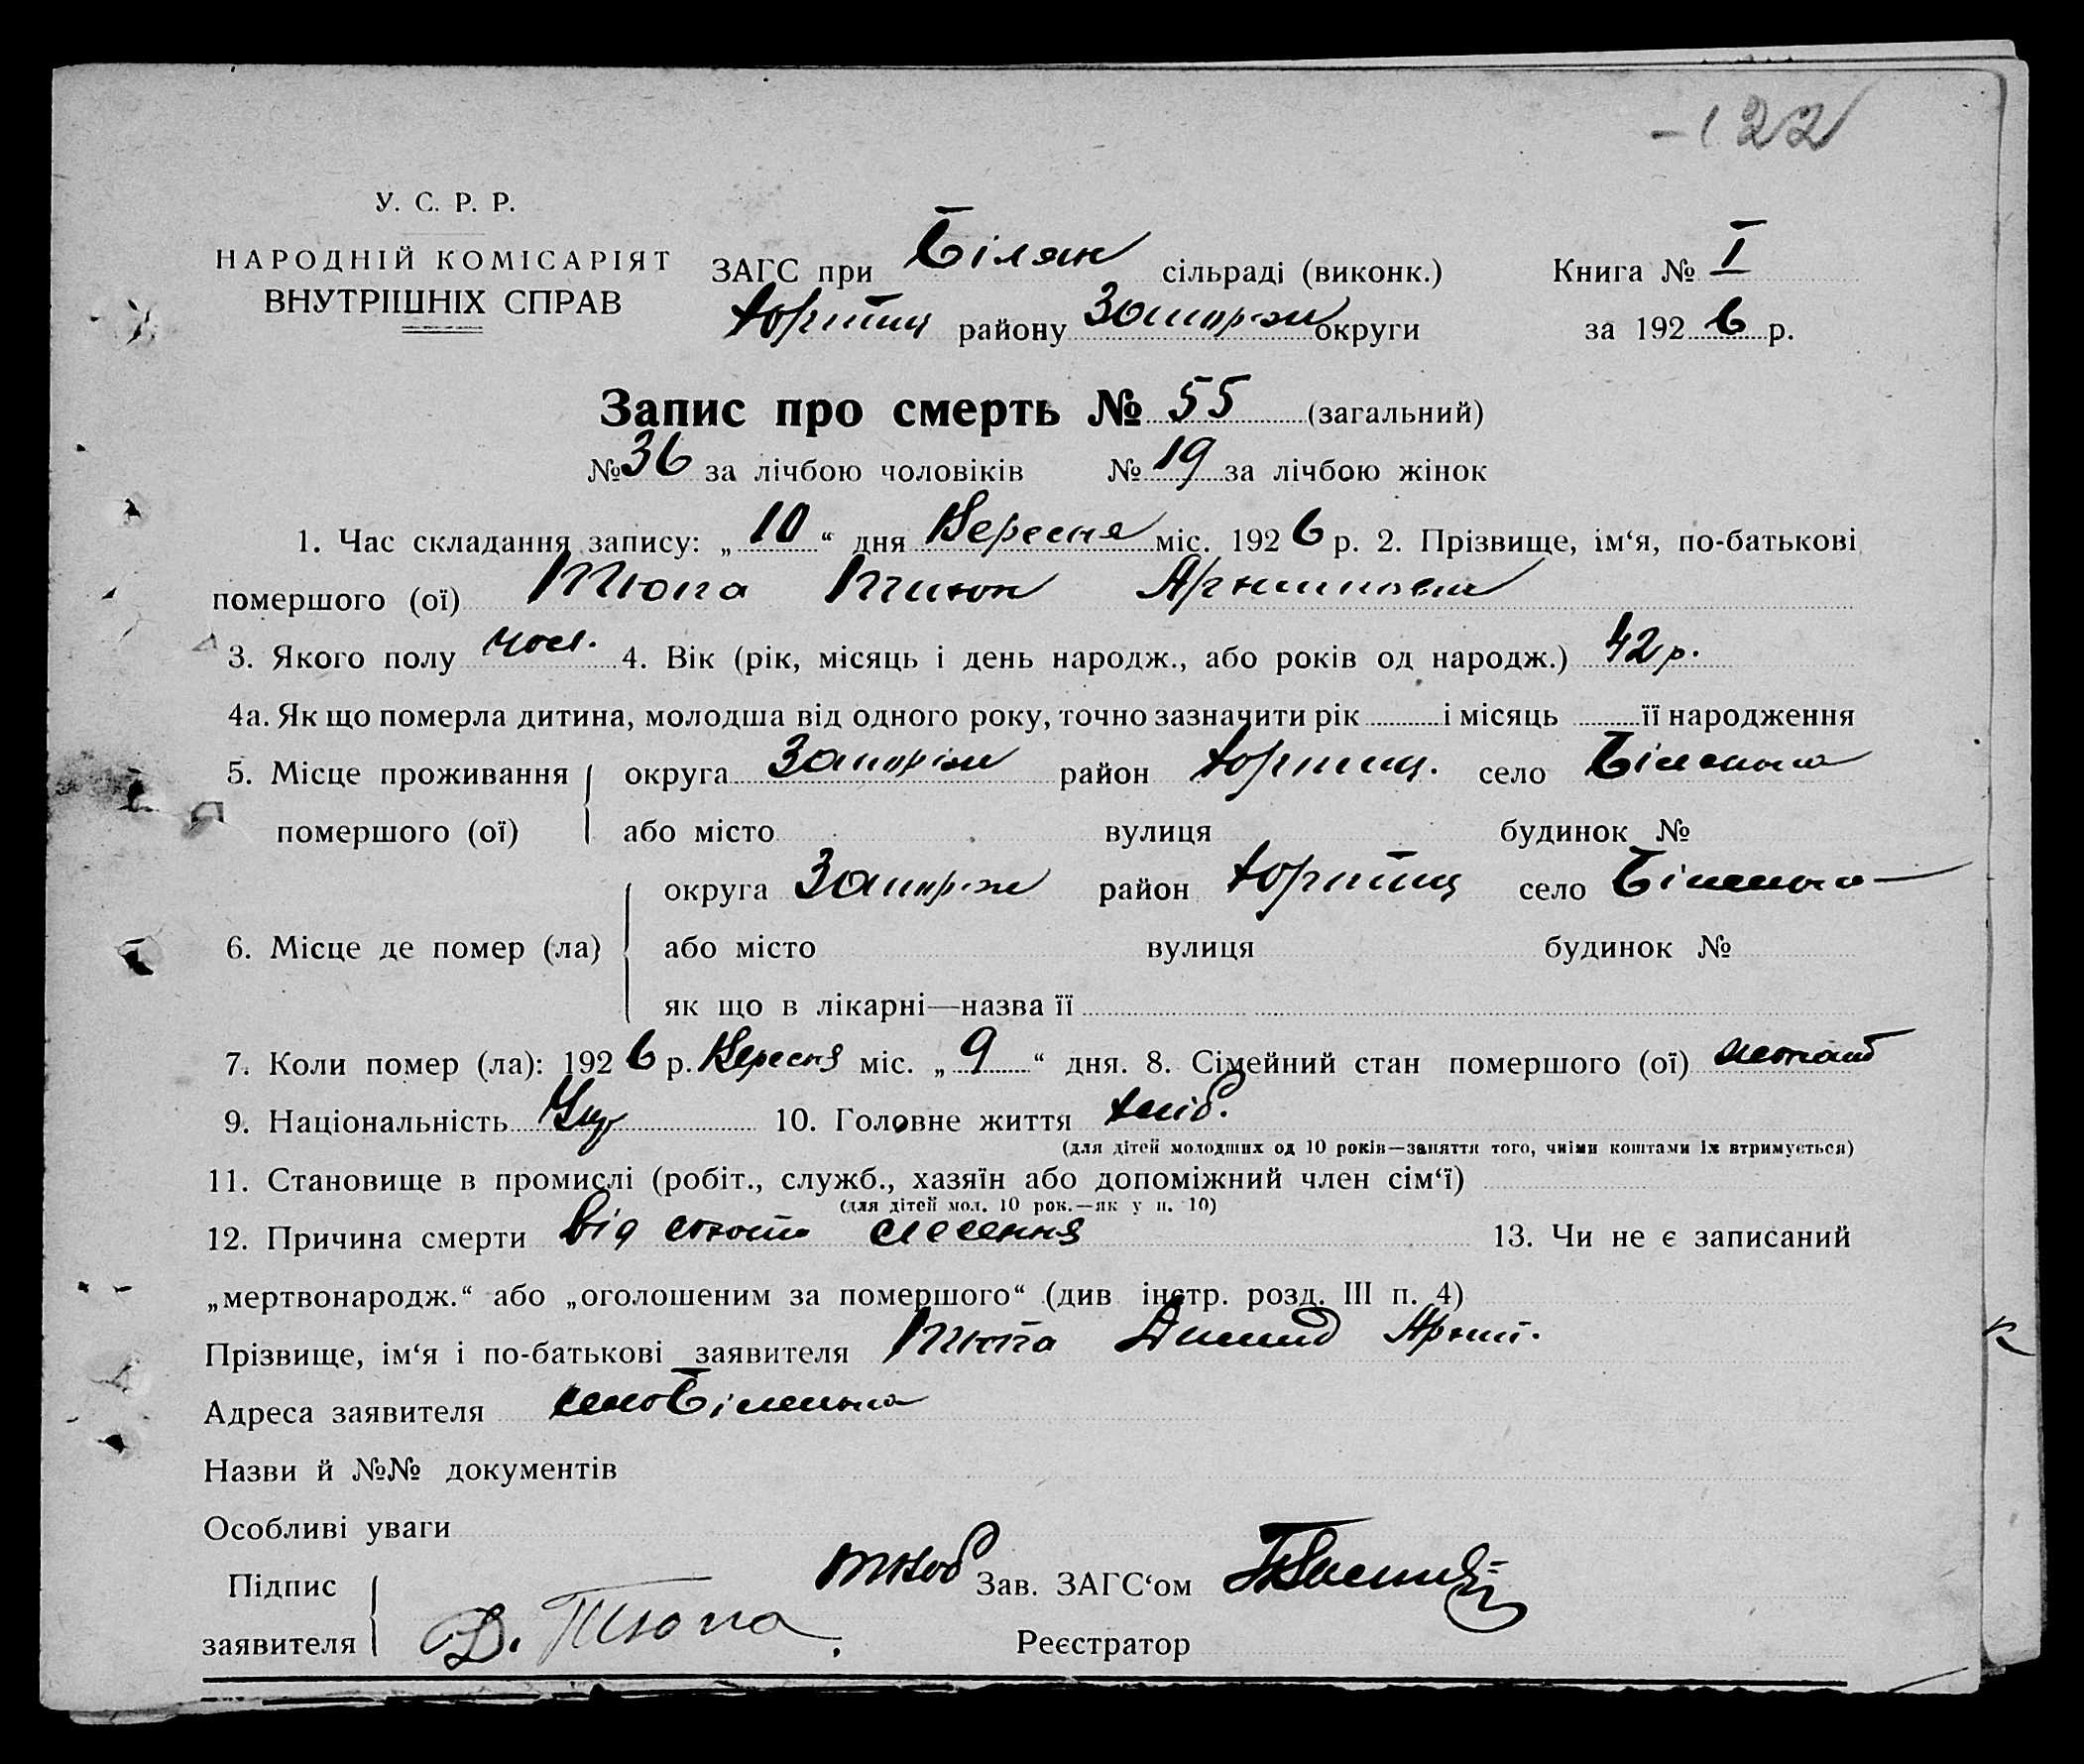 -122
У. С. Р. Р.
НАРОДНІЙ КОМІСАРІЯТ
ВНУТРІШНІХ СПРАВ
ЗАГС при Білян сільраді (виконк.)
Хортиц району Запоріж округи
Книга № I
за 1926 р.
Запис про смерть № 55 (загальний)
№ 36 за лічбою чоловіків № 19 за лічбою жінок
1. Час складання запису: „10“ дня Вересня міс. 1926 р. 2. Прізвище, ім‘я, по-батькові
помершого (ої) Тюпа
3. Якого полу чол. 4. Вік (рік, місяць і день народж., або років од народж.) 42 р.
4а. Як що померла дитина, молодша від одного року, точно зазначити рік і місяць її народження
5. Місце проживання помершого (ої)
округа Запоріж район Хортиц. село Біленька
або місто вулиця будинок №
6. Місце де помер (ла)
округа Запоріж район Хортиц село Біленька
або місто вулиця будинок №
як що в лікарні—назва її
7. Коли помер (ла): 1926 р. Вересня міс. „9“ дня. 8. Сімейний стан помершого (ої)
9. Національність Укр 10. Головне життя хліб.
(для дітей молодших од 10 років—заняття того, чиїми коштами їх втримується)
11. Становище в промислі (робіт., служб., хазяїн або допоміжний член сім‘ї)
(для дітей мол. 10 рок.—як у п. 10)
12. Причина смерти від 13. Чи не є записаний
„мертвонародж.“ або „оголошеним за помершого“ (див інстр. розд. III п. 4)
Прізвище, ім‘я і по-батькові заявителя Тюпа
Адреса заявителя село Біленька
Назви й №№ документів
Особливі уваги
Підпис заявителя Д. Тюпа
Зав. ЗАГС‘ом
Реєстратор